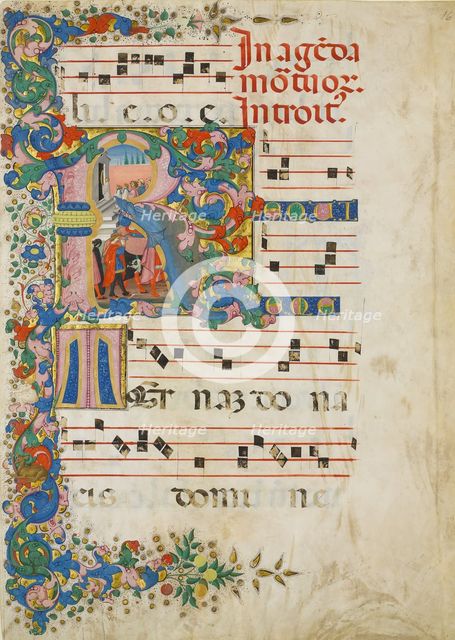 16
In agēda
mōtuoꝝ.
Introit'.
lu. c. o. c.
R
et naz do na
eis domine
Heritage
Heritage
Heritage
Heritage
Heritage
Heritage
Heritage
C